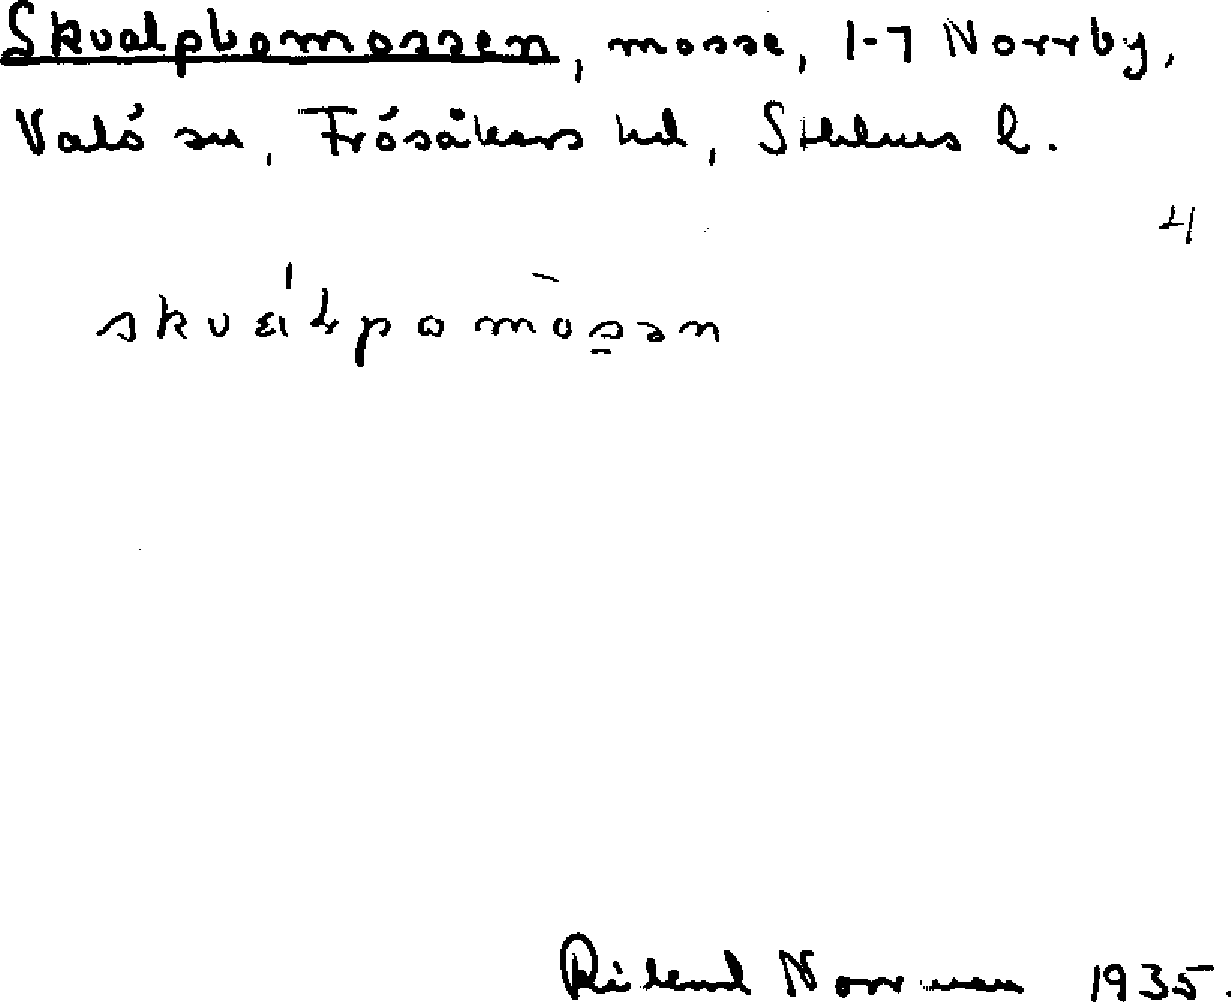 Skvalpbomossen, mosse, 1-7 Norrby,
Valö sn, Frösåkers hd, Sthlms l.
4
skvalpomosən
Rikard Norrman 1935.